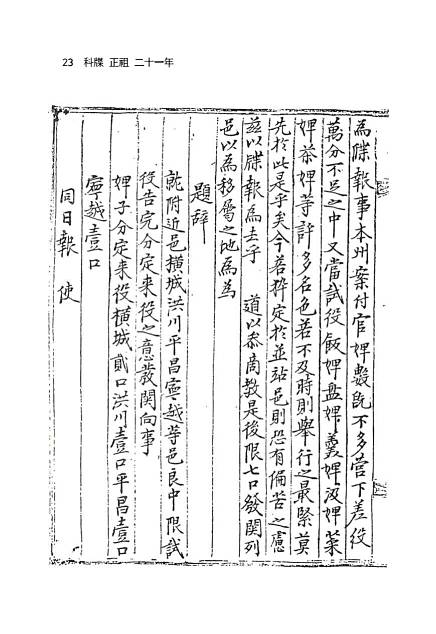 23 科牒 正祖 二十一年
為牒報事本州案付官婢數旣不多營下差役
萬分不足之中又當試役飯婢盤婢羹婢汲婢菜
婢恭婢等許多名色若不及時則擧行之最緊莫
先於此是乎矣今若粹定於並站邑則恐有偏苦之慮
玆以牒報爲去乎 道以參商敎是後限七口發關列
邑以爲移屬之地爲爲
題辞
就附近邑橫城洪川平昌寧越等邑良中限試
役告完分定來役之意發關向事
婢子分定来役橫城貳口洪川壹口平昌壹口
寧越壹口
同日報 使